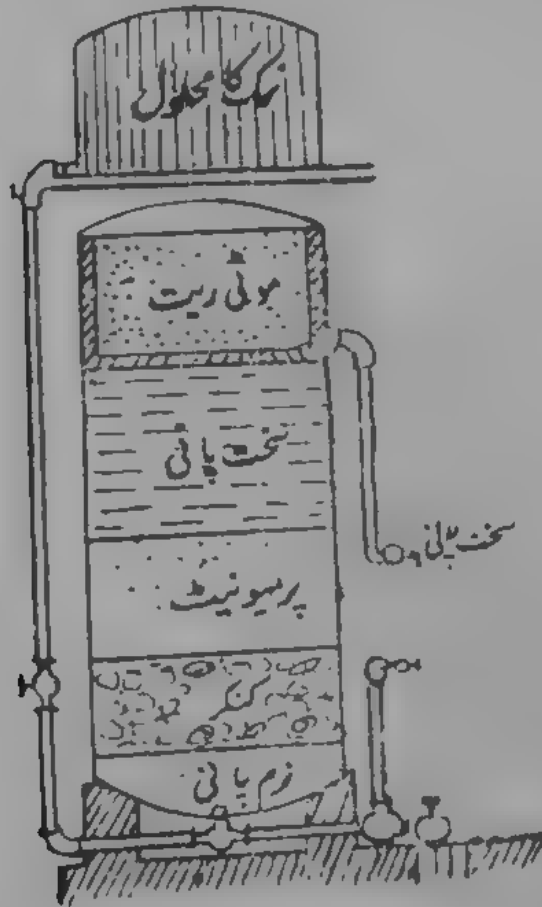 نمک کا محلول
موٹی ریت
سخت پانی
سخت پانی
پرمیوٹیٹ
کنکر
نرم پانی